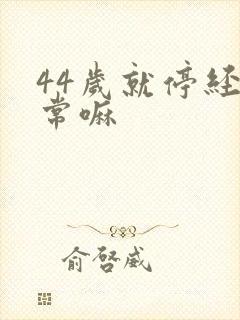 44歲就停経
常嘛
俞啓威